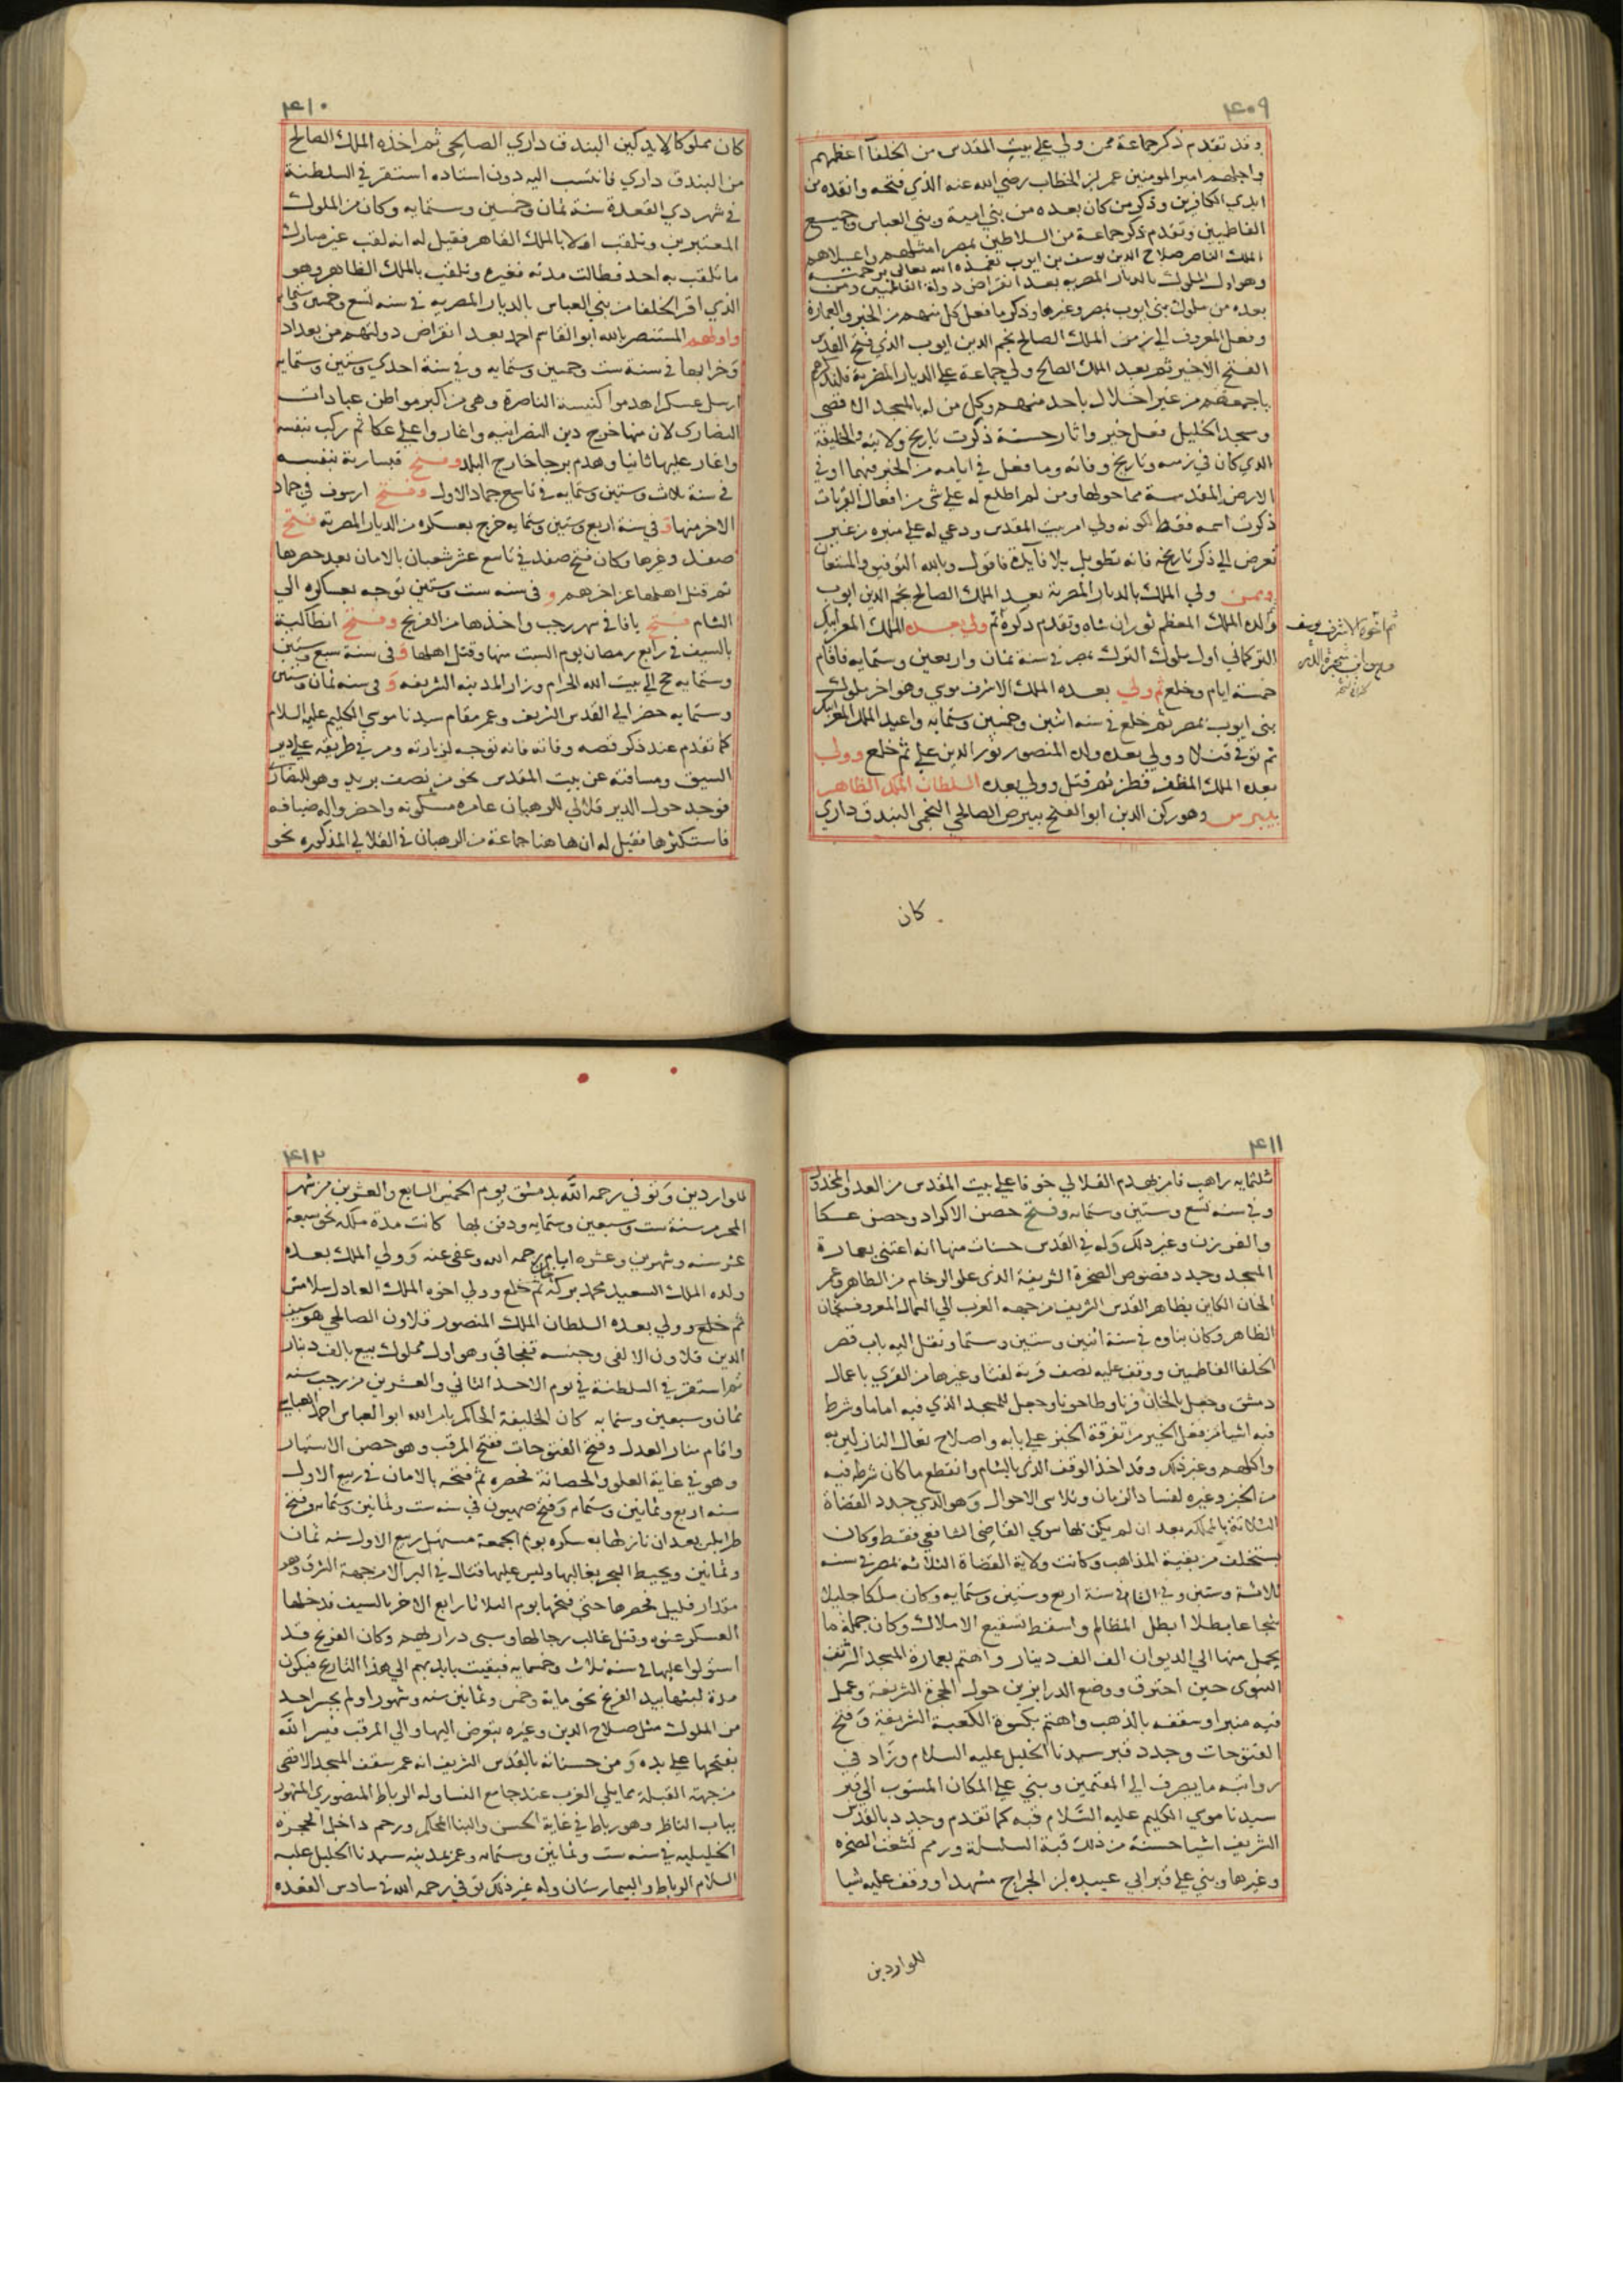 ٤٠٩
وقد تقدم ذكر جماعة ممن ولي علي بيت المقدس من الخلفآ اعظمهم
واجلهم امير المومنين عمر بن الخطاب رضي الله عنه الذي فتحه وانقده من
ايدي الكافرين وذكر من كان بعده من بني امية وبني العباس وجميع
الفاطميين وتقدم ذكر جماعة من السلاطين بمصر امثلهم واعلاهم
الملك الناصر صلاح الدين يوسف بن ايوب تغمده الله تعالى برحمته
وهو اول الملوك بالديار المصريه بعد انقراض دولة الفاطميين ومن
بعده من ملوك بني ايوب بمصر وغيرها وذكر ما فعل كل منهم من الخير والعمارة
وفعل المعروف الي زمن الملك الصالح نجم الدين ايوب الذي فتح القدس
الفتح الاخير ثم بعد الملك الصالح ولي جماعة علي الديار المصرية فلنذكرهم
باجمعهم من غير اخلال باحد منهم وكل من له بالمسجد الاقصى
ومسجد الخليل فعل خير واثار حسنة ذكرت تاريخ ولايته والخليفة
الدي كان في زمنه وتاريخ وفاته وما فعل في ايامه من الخير فيهما او في
الارض المقدسة مما حولها ومن لم اطلع له علي شي من افعال القربات
ذكرت اسمه فقط لكونه ولي امر بيت المقدس ودعي له علي منبره من غير
تعرض الي ذكر تاريخه فانه تطويل بلا فايدة فاقول وبالله التوفيق والمستعان
وممن ولي الملك بالديار المصرية بعد الملك الصالح نجم الدين ايوب
ولده الملك المعظم توران شاه وتقدم ذكره ثم ولي بعده الملك المعز ايبك
التركماني اول ملوك الترك بمصر في سنة ثمان واربعين وستمايه فاقام
خمسة ايام وخلع ثم ولي بعده الملك الاشرف موسي وهو اخر ملوك
بني ايوب بمصر ثم خلع في سنه اثنين وخمسين وستمايه واعيد الملك المعز ايبك
ثم توفي قتلا وولي بعده ولده المنصور نور الدين علي ثم خلع وولي
بعده الملك المظفر قطز ثم قتل وولي بعده السلطان الملك الظاهر
بيبرس وهو ركن الدين ابو الفتح بيبرص الصالحي النجمي البندقداري
ثم اخوه الاشرف يوسف
شجرة الدر
كان
٤١٠
كان مملوكا لايدكين البندقداري الصالحي ثم اخذه الملك الصالح
من البندقداري فانتسب اليه دون استاده استقر في السلطنة
في شهر دي القعدة سنة ثمان وخمسين وستمايه وكان من الملوك
المعتبرين وتلقب اولا بالملك القاهر فقيل له انه لقب غير مبارك
ما تلقب به احد فطالت مدته فغيره وتلقب بالملك الظاهر وهو
الذي اقر الخلفا من بني العباس بالديار المصريه في سنه تسع وخمسين وستمايه
واولهم المستنصر بالله ابو القاسم احمد بعد انقراض دولتهم من بغداد
وخرابها في سنة ست وخمسين وستمايه وفي سنة احدي وستين وستمايه
ارسل عسكرا هدموا كنيسة الناصرة وهى من اكبر مواطن عبادات
النصارى لان منها خرج دين النصرانيه واغاروا علي عكا ثم ركب بنفسه
واغار عليها ثانيا وهدم برجا خارج البلد وفتح قيسارية بنفسه
في سنة ثلاث وستين وستمايه في تاسع جماد الاول وفتح ارسوف في جماد
الاخر منها وفي سنة اربع وستين وستمايه خرج بعسكره من الديار المصرية فتح
صفد وغيرها وكان فتح صفد في تاسع عشر شعبان بالامان بعد حصرها
ثم قتل اهلها عن اخرهم وفي سنه ست وستين توجه بعساكره الى
الشام فتح يافا في شهر رجب واخذها من الفرنج وفتح انطاكية
بالسيف في رابع رمضان يوم السبت منها وقتل اهلها وفى سنة سبع وستين
وستمايه حج الي بيت الله الحرام وزار المدينه الشريفه وفى سنه ثمان وستين
وستمايه حضر الي القدس الشريف وعمر مقام سيدنا موسي الكليم عليه السلام
كما تقدم عند ذكر قصه وفاته فانه توجه لزيارته ومر في طريقه علي دير
السيق ومسافته عن بيت المقدس نحو من نصف بريد وهو للنصارى
فوجد حول الدير قلالي للرهبان عامره مسكونه واحضروا له ضيافه
فاستكثرها فقيل له ان هاهنا جماعة من الرهبان في القلالي المذكوره نحو
٤١١
ثلثمايه راهب فامر بهدم القلالي خوفا علي بيت المقدس من العدو المخذول
وفي سنه تسع وستين وستمايه وفتح حصن الاكراد وحصن عكا
والقورين وغير دلك وله في القدس حسنات منها انه اعتني بعمارة
المسجد وجدد فصوص الصخرة الشريفة الذى علو الرخام من الظاهر وعمر
الخان الكاين بظاهر القدس الشريف من جهه الغرب الي الشمال المعروف بخان
الظاهر وكان بناوه في سنة اثنين وستين وستمايه ونقل اليه باب قصر
الخلفا الفاطميين ووقف عليه نصف قرية لفتا وغيرها من القري باعمال
دمشق وجعل بالخان فرنا وطاحونا وجعل للمسجد الذي فيه اماما وشرط
فيه اشيا من فعل الخير من تفرقة الخبز علي بابه واصلاح نعال النازلين به
واكلهم وغير ذلك وقد اخذ الوقف الذى بالشام وانقطع ما كان شرط فيه
من الخبز وغيره لفساد الزمان وتلاشى الاحوال وهو الذي جدد القضاة
الثلاثة بالمملكه بعد ان لم يكن بها سوي القاضي الشافعي فقط وكان
يستخلف من بقية المذاهب وكانت ولاية القضاة الثلاثه بمصر في سنه
ثلاثة وستين وفي الشام في سنة اربع وستين وستمايه وكان ملكا جليلا
شجاعا بطلا ابطل المظالم واسقط تسقيع الاملاك وكان جملة ما
يحمل منها الي الديوان الف الف دينار واهتم بعمارة المسجد الشريف
النبوى حين احترق ووضع الدرابزين حول الحجرة الشريفة وعمل
فيه منبرا وسقفه بالذهب واهتم بكسوة الكعبة الشريفة وفتح
الفتوحات وجدد قبر سيدنا الخليل عليه السلام وزاد في
رواتبه ما يصرف الي المقيمين وبني علي المكان المنسوب الي قبر
سيدنا موسي الكليم عليه السلام قبه كما تقدم وجدد بالقدس
الشريف اشيا حسنة من ذلك قبة السلسلة ورمم شعث الصخره
وغيرها وبني علي قبر ابي عبيده بن الجراح مشهدا ووقف عليه شيا
للواردين
٤١٢
للواردين وتوفي رحمه الله بدمشق يوم الخميس السابع والعشرين من شهر
المحرم سنة ست وسبعين وستمايه ودفن بها كانت مدة ملكه نحو سبعة
عشر سنه وشهرين وعشره ايام رحمه الله وعفى عنه وولي الملك بعده
ولده الملك السعيد محمد بركة خان ثم خلع وولي اخوه الملك العادل سلامش
ثم خلع وولي بعده السلطان الملك المنصور قلاون الصالحي هو سيف
الدين قلاون الالفى وجنسه قفجاقي وهو اول مملوك بيع بالف دينار
ثم استقر في السلطنة في يوم الاحد الثاني والعشرين من رجب سنه
ثمان وسبعين وستمايه كان الخليفة الحاكم بامر الله ابو العباس احمد العباسي
واقام منار العدل وفتح الفتوحات ففتح المرقب وهو حصن الاستبار
وهو في غاية العلو والحصانة فحصره ثم فتحه بالامان في ربيع الاول
سنه اربع وثمانين وستمايه وفتح صهيون في سنه ست وثمانين وستمايه وفتح
طرابلس بعد ان نازلها بعسكره يوم الجمعة مستهل ربيع الاول سنه ثمان
وثمانين ويحيط البحر بغالبها وليس عليها قتال في البر الا من جهة الشرق وهو
مقدار قليل فحصرها حتي فتحها يوم الثلاثا رابع الاخر بالسيف فدخلها
العسكر عنوه وقتل غالب رجالها وسبى دراريهم وكان الفرنج قد
استولوا عليها في سنه ثلاث وخمسمايه فبقيت بايديهم الي هذا التاريخ فيكون
مدة لبثها بيد الفرنج نحو ماية وخمس وثمانين سنه وشهور اولم يجسر احد
من الملوك مثل صلاح الدين وغيره يتعرض اليها والي المرقب فيسر الله
بفتحها علي يده ومن حسناته بالقدس الشريف انه عمر سقف المسجد الاقصى
من جهة القبلة مما يلي الغرب عند جامع النسا وله الرباط المنصوري المشهور
بباب الناظر وهو رباط في غاية الحسن والبنا المحكم ورخم داخل الحجره
الخليليه في سنه ست وثمانين وستمايه وعمر بمدينه سيدنا الخليل عليه
السلام الرباط والبيمارستان وله غير ذلك توفي رحمه الله في سادس القعده